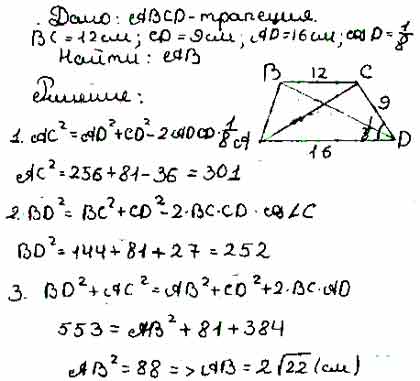 Дано: ABCD-трапеция.
BC=12см; CD=9см; AD=16см; cos D=1/8
Найти: AB
Решение:
B 12 C
9
A 16 D
1. AC²=AD²+CD²-2AD·CD·1/8
AC²=256+81-36=301
2. BD²=BC²+CD²-2·BC·CD·cos∠C
BD²=144+81+27=252
3. BD²+AC²=AB²+CD²+2·BC·AD
553=AB²+81+384
AB²=88=>AB=2√22(см)